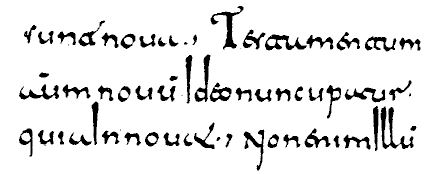 sunt noua., Testamentum
aūm nouū Ideo nuncupatur.
quia Innouat., Non enim Illū